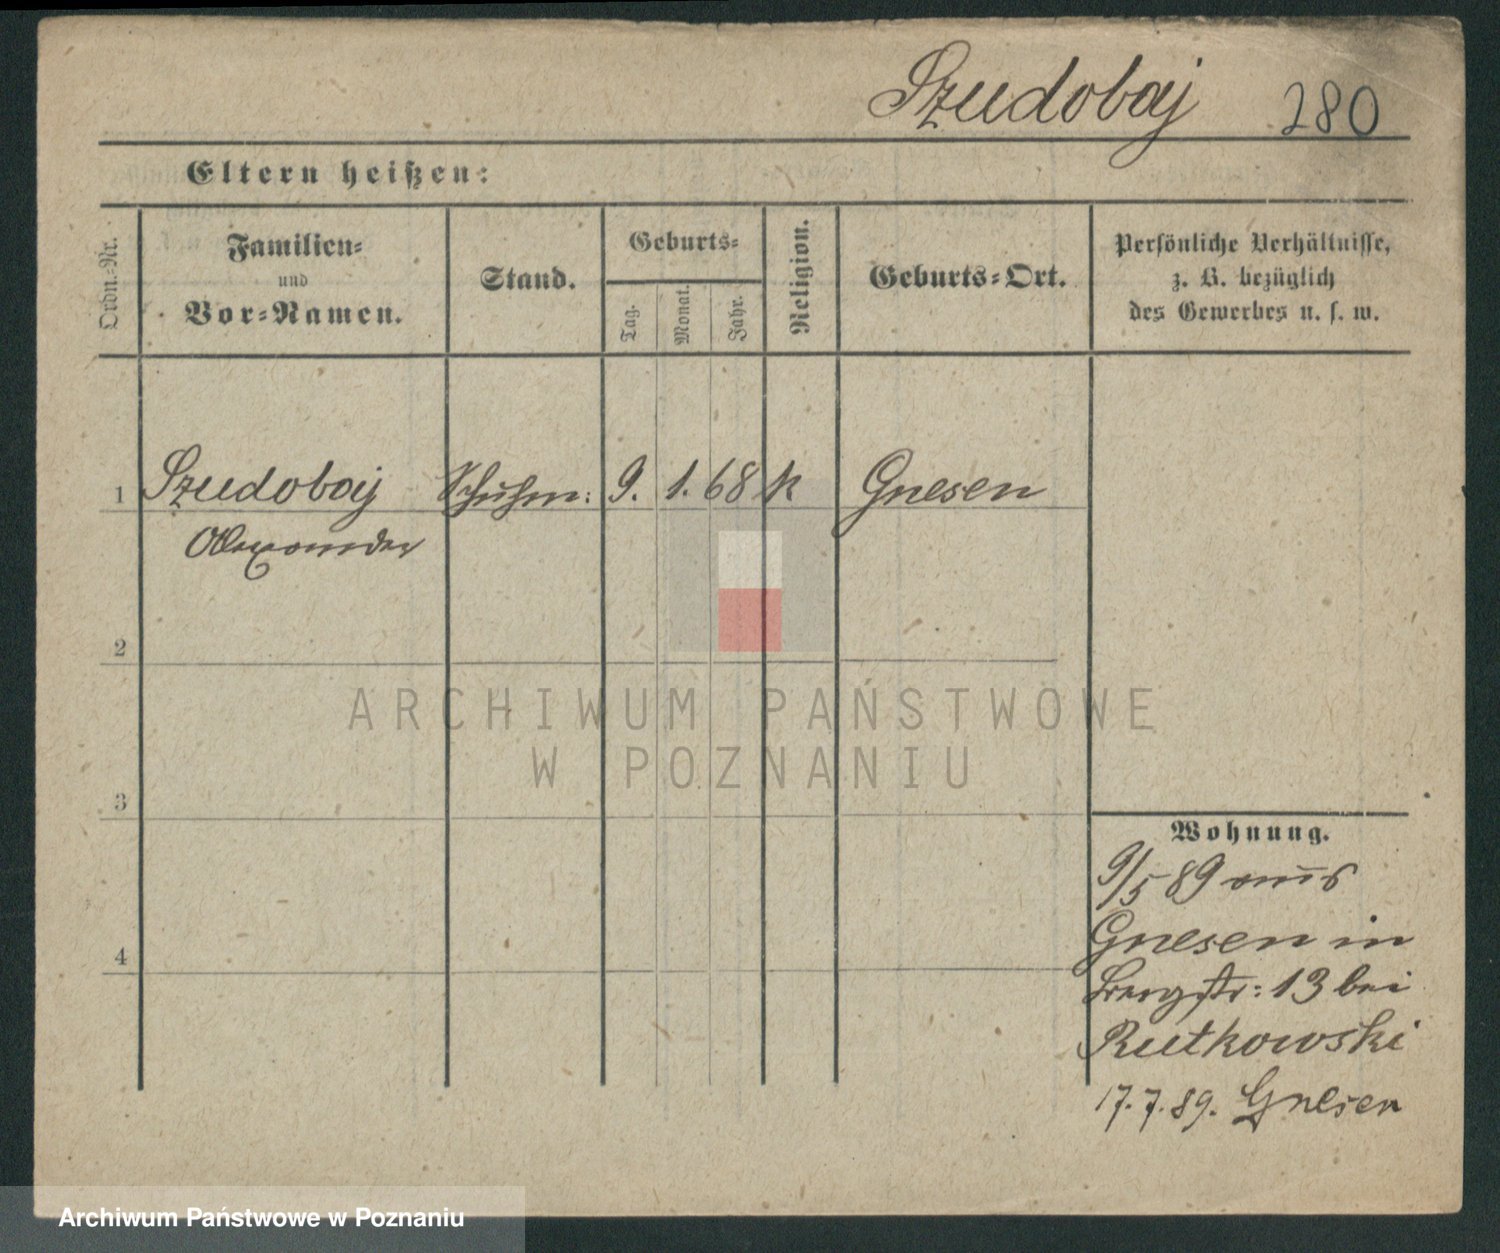 Szudobaj 280
Eltern heißen:
Ordn.-Nr.
Familien-
und
Vor-Namen.
Stand.
Geburts-
Tag.
Monat.
Jahr.
Religion.
Geburts-Ort.
Persönliche Verhältnisse,
z. B. bezüglich
des Gewerbes u. s. w.
1 Szudobaj Schuhm: 9. 1. 68 k Gnesen
Alexander
2
3
4
Wohnung.
9/5 89 aus
Gnesen in
Bergstr: 13 bei
Rutkowski
17.7.89. Gnesen
ARCHIWUM PAŃSTWOWE
W POZNANIU
Archiwum Państwowe w Poznaniu